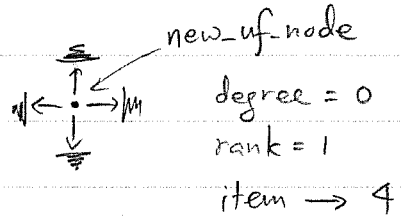 new_uf_node
degree = 0
rank = 1
item → 4